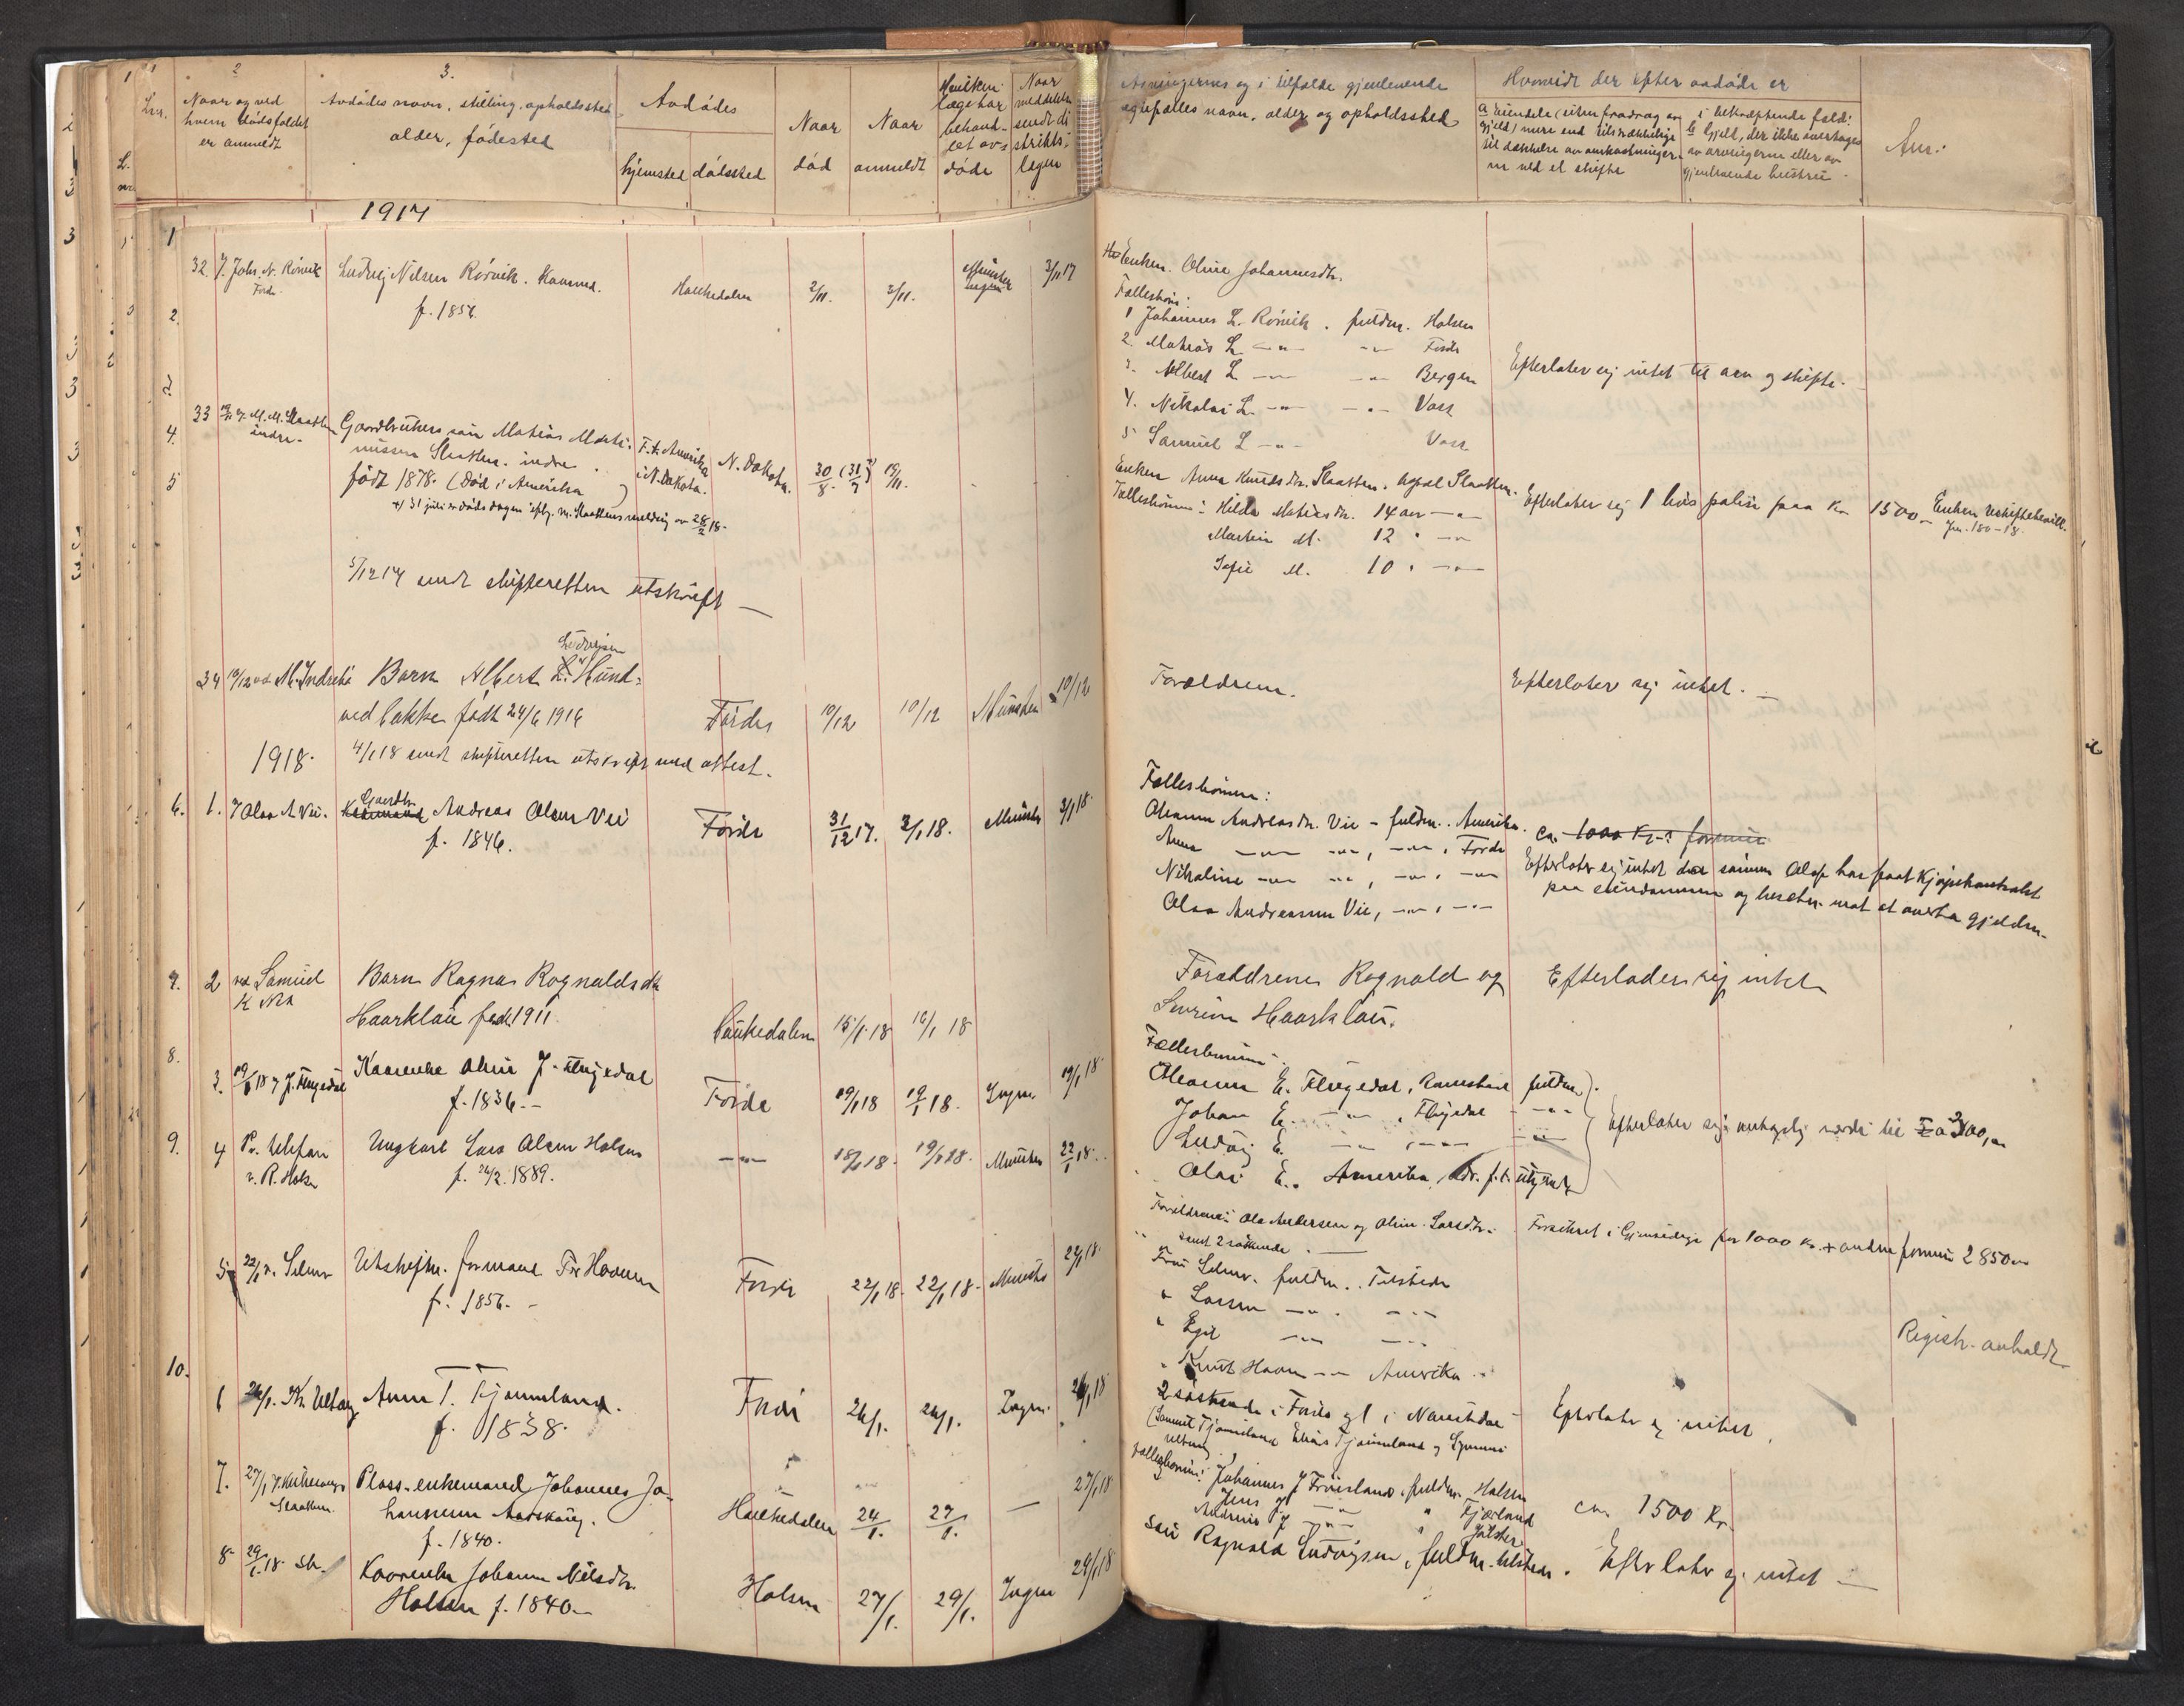 1
2
3.
Lnr.
Naar og ved
hvem dødsfaldet
er anmeldt
Avdødes navn, stilling, opholdssted
alder, fødested
Avdødes
hjemsted
dødssted
Naar
død
Naar
anmeldt
Hvilken
læge har
behand-
let avs
døde
Naar
meddelelse
sendt di
strikts-
lægen
Arvingernes og i tilfælde gjenlevende
egtefælles navn, alder og opholdssted
Hvorvidt der efter avdøde er
a Eiendele (uten fradrag av
gjeld) mere end tilstrækkelige
til dækkelse av omkostninger-
ne ved et skifte
i bekræftende fald:
b Gjeld, der ikke overtages
av arvingerne eller av
gjenlevende hustru
Anm.
1917
32.
J. Johs. N. Rørvik
Førde
Ludvig Nilsen Rørvik. Kaarmd.
f. 1854.
Haukedalen
2/11.
3/11.
Münster
Ingen
3/11 17
Enken. Oline Johannesdtr.
Fællesbørn:
1 Johannes L. Rørvik. fuldm. Holsen
2. Mathias L. —"— —"— Førde
3. Albert L. —"— —"— Bergen
4. Nikolai L. —"— —"— Voss
5 Samuel L. —"— Voss
Efterlater sig intet til arv og skifte.
33
M. M. Slaatten
indre.
Gaardbrukers søn Matias Marti-
nussen Slaatten. indre.
født 1878. (Død i Amerika)
x) 31 juli er dødsdagen iflg. M. Slaattens melding av 28/2 18.
F. t. Amerika
i N. Dakota.
N. Dakota.
30/8. (31/7) x)
19/11.
Enken Anna Knudsdtr. Slaatten.
Fællesbørn: Hilda Matiasdtr. 14 aar —"—
Martin M. 12 " —"—
Sofie M. 10 " —"—
Efterlater sig 1 livspolise paa Kr. 1500.—
Enken Uskiftebevill.
Jnr. 180-18.
5/12 17 sendt skifteretten utskrift —
34
10/12 ved M. Indrebø
Barn Albert L. Hund-
Ludvigsen
vedbakke født 24/6 1916
Førde
10/12
10/12
Münster
10/12
Forældrene.
Efterlater sig intet. —
1918.
4/1 18 sendt skifteretten utskrift med attest.
1.
J Olav A Vie.
Kaarmand
Gaardbr.
Andreas Olsen Vie
f. 1846.
Førde
31/12 17.
3/1 18.
Münster
3/1 18.
Fællesbørn:
Oleanna Andreasdtr. Vie - fuldm. Amerika.
Anna —"— —"—, —"—, Førde
Nikoline —"— —"—, —"—, —"—
Olav Andreassen Vie, —"—, —"—
ca. 1000 Kr. i formue
Efterlater sig intet da sønnen Olaf har faat Kjøpekontrakt
paa eiendommen og besætn. mot at overta gjelden.
2
ved Samuel
K Nes
Barn Ragna Rognaldsdtr
Haarklau født 1911.
Haukedalen
15/1 18
16/1 18
Forældrene Rognald og
Severine Haarklau.
Efterlader sig intet
3.
19/1 18 J. Flugedal
Kaarenke Oline J. Flugedal
f. 1836.—
Førde
19/1 18
19/1 18.
Ingen
19/1 18.
Fællesbørn:
Oleanna E. Flugedal, fuldm.
Johan E. —"— Flugedal —"—
Ludvig E. —"— —"— —"—
Olai E. Amerika,
Efterlater sig
4
Pr. telefon
v. R. Holsen
Ungkarl Lars Olsen Holsen
f. 24/2. 1889.
—"—
18/1 18.
19/1 18.
Münster
22/1 18.
Forældrene: Ola Andersen og Oline Larsdtr.
samt 2 søskende. —
Forsikret i Gjensidige for 1000 Kr. + anden formue 2850 00
5
22/1 v. Selmer
Utskiftn. formand Tor Haaven
f. 1856.—
Førde
22/1 18.
22/1 18.
Münster
22/1 18.
Fru Selmer. fuldm. Tilstede
" Larsen —"— —"—
" Egil —"— —"—
" Knut Haaven —"— Amerika
Registr. avholdt
6
26/1. Kr. Ultang
Anna T. Tjønneland.
f. 1838.
Førde
26/1.
26/1.
Ingen.
26/1 18
2 søskende i Førde og 1 i Naustdal
(Samuel Tjønneland Elias Tjønneland og
Efterlater sig intet.
7.
27/1
Slaatten.
Plass-enkemand Johannes Jo-
hannesen Aasskaug.
f. 1840.
Haukedalen
24/1.
27/1.
—
27/1 18
Fællesbørn: Johannes J. fuldm. Holsen
Jens J. —"— " Fjærland
J. —"— " Jølster
ca. 1500 Kr.
8
29/1 18.
Kaarenke Johanne Nilsdtr.
Holsen f. 1840.—
Holsen
27/1.
29/1.
Ingen
29/1 18
Søn Rognald Ludvigsen, fuldm. tilstede.
Efterlater sig intet —